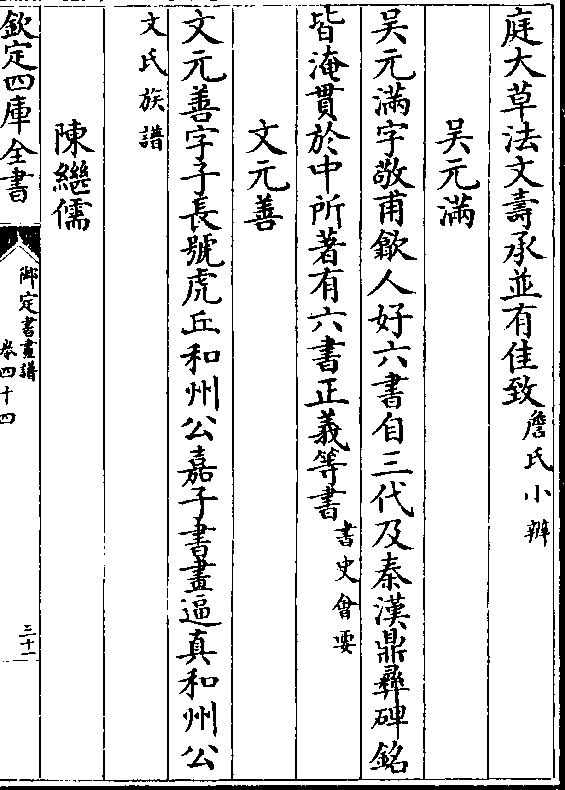 庭大草法文壽承並有佳致詹氏小辨
吴元滿
吴元滿字敬甫歙人好六書自三代及秦漢鼎彝碑銘
皆淹貫於中所著有六書正義等書書史會要
文元善
文元善字子長號虎丘和州公嘉子書畫逼真和州公
文氏族譜
陳繼儒
欽定四庫全書
御定書畫譜
卷四十四
三十一